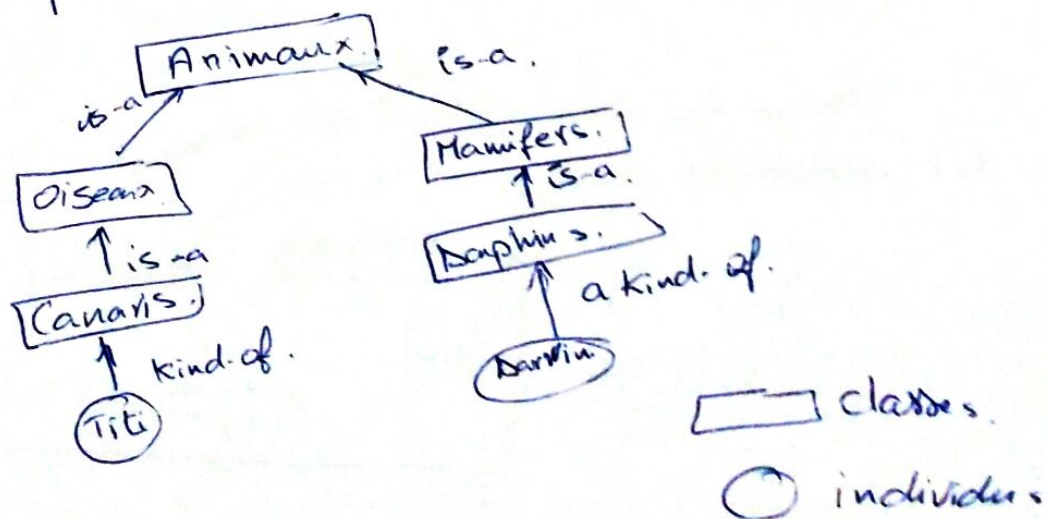 Animaux.
is-a.
is-a
Mamifers.
Oiseaux
is-a.
Dauphins.
is-a
a kind-of.
Canaris.
kind-of.
Darwin
Titi
classes.
individus